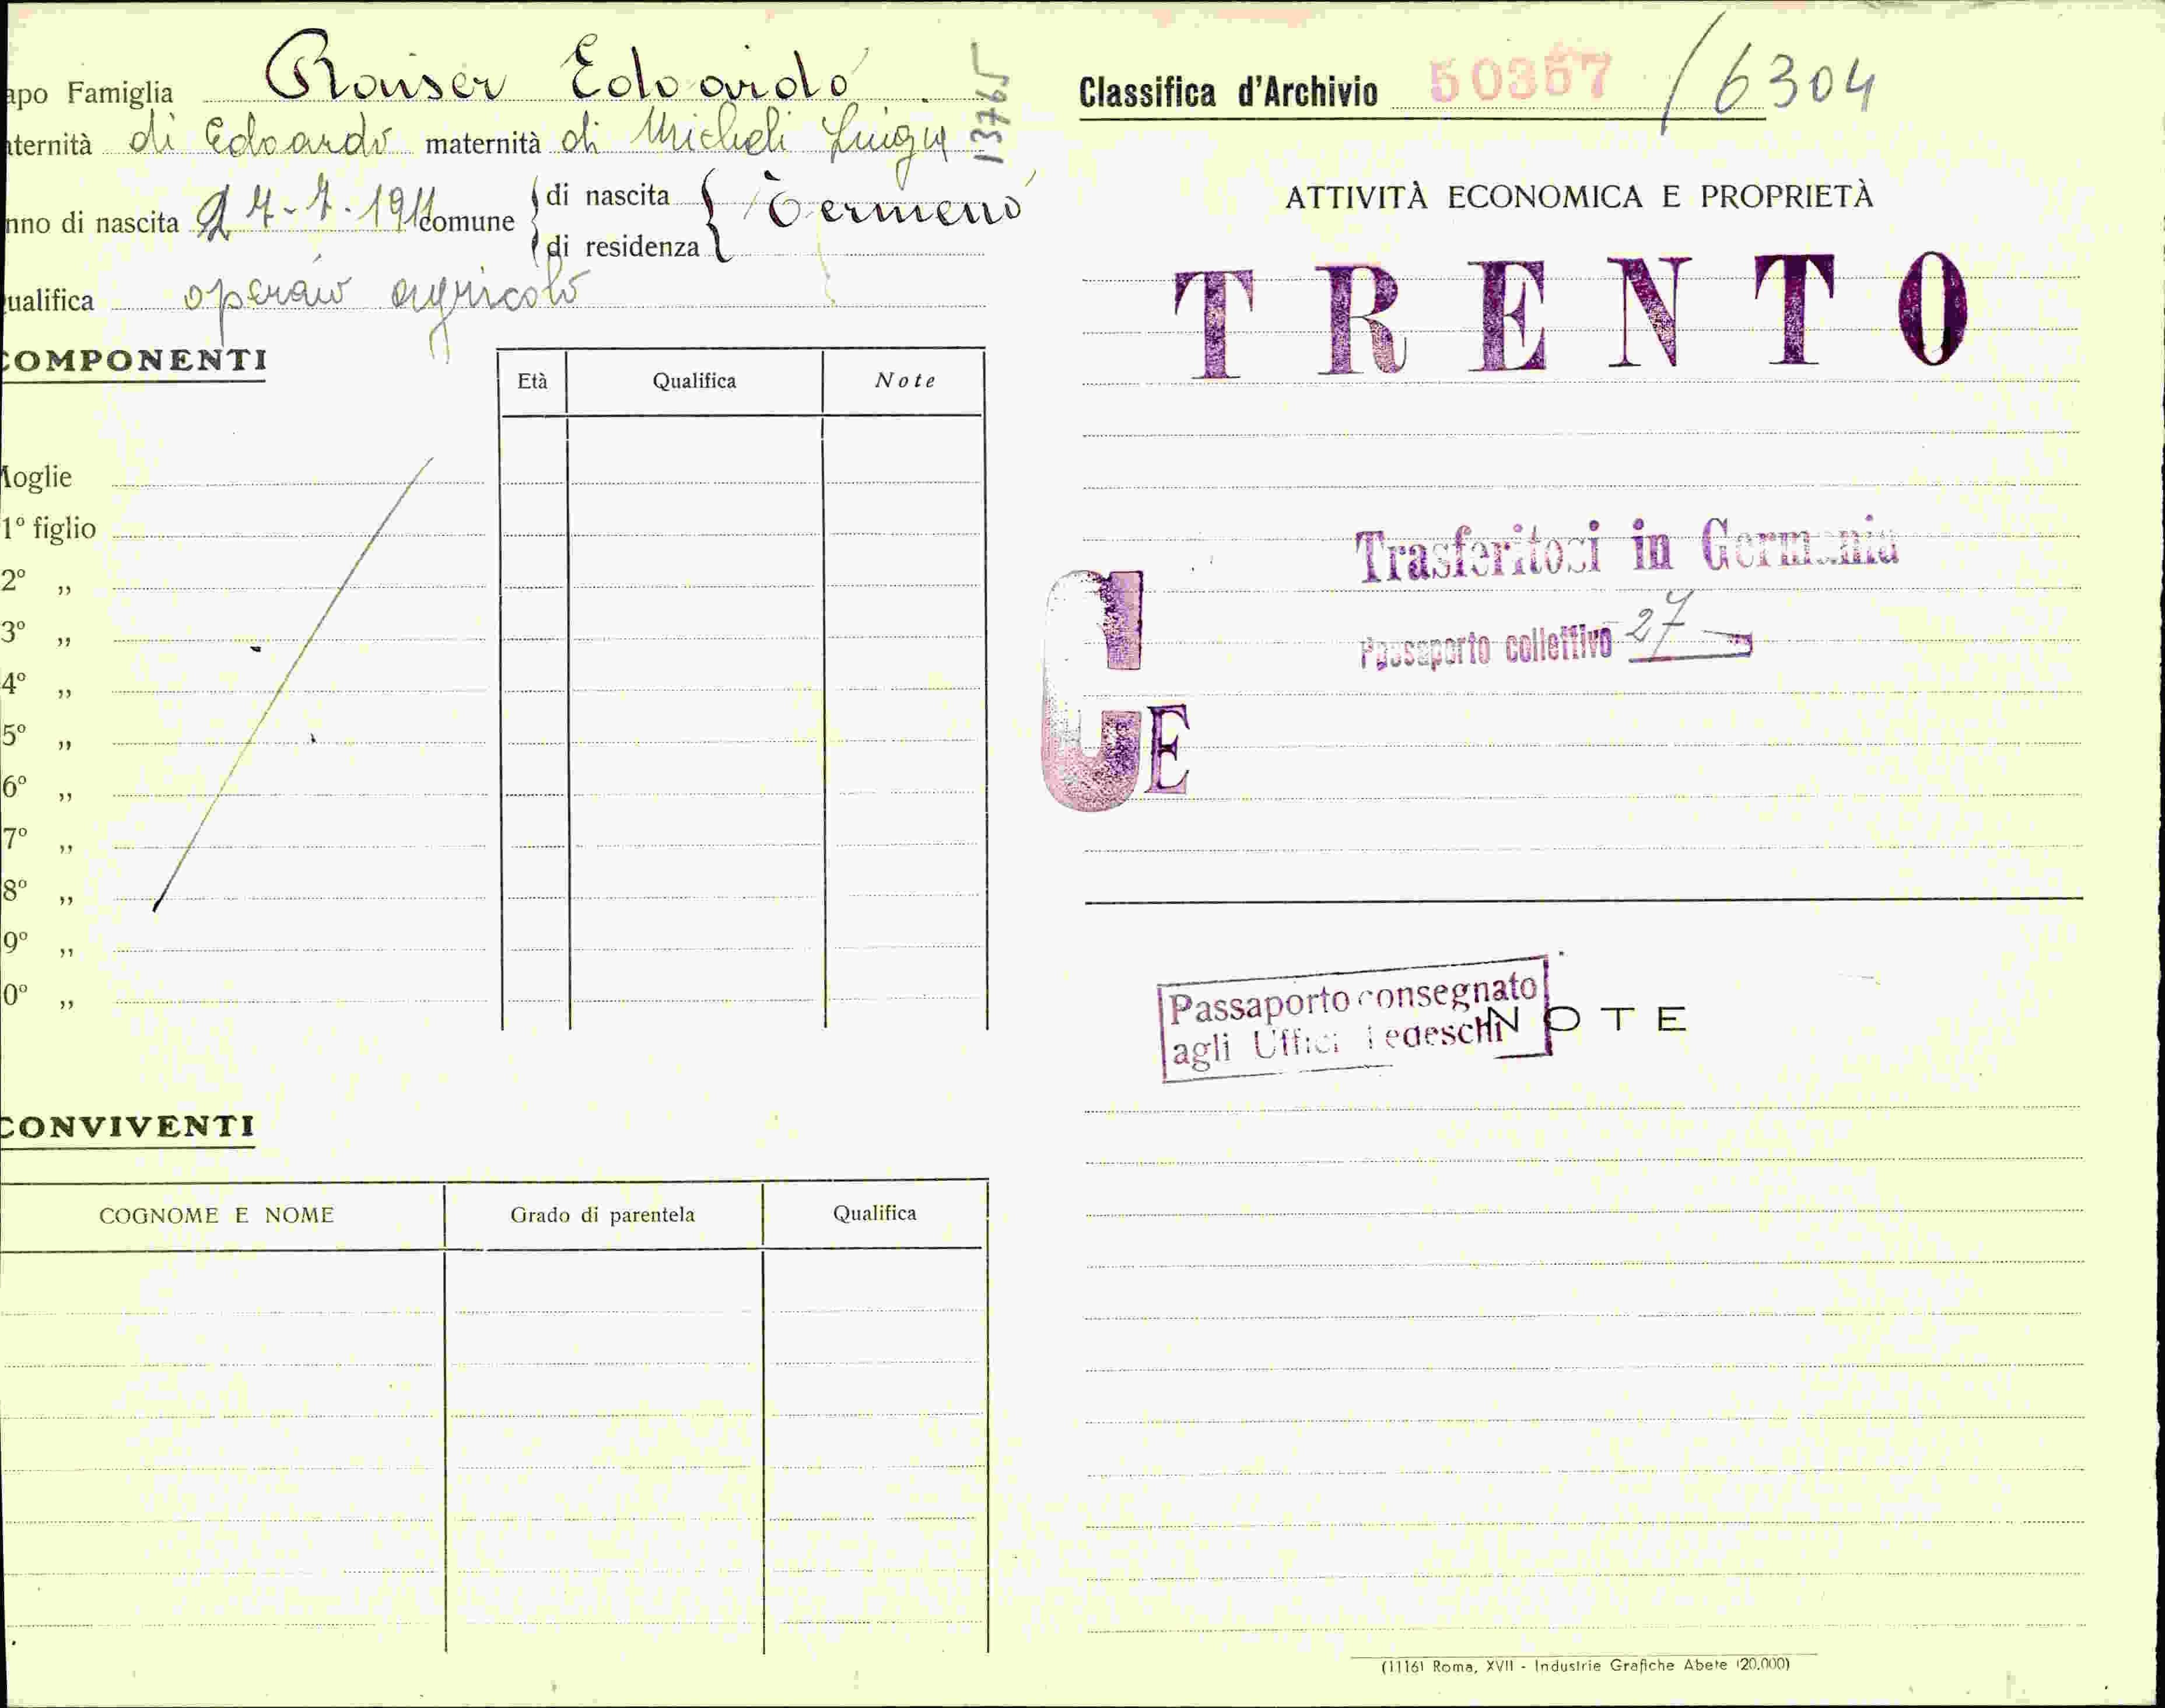 apo Famiglia Ronser Edoardo
aternità di Edoardo maternità di Micheli Luigia
13765
nno di nascita 27-7-1911 comune di nascita Termeno
di residenza
ualifica operaio agricolo
COMPONENTI
Età Qualifica Note
Moglie
1º figlio
2º „
3º „
4º „
5º „
6º „
7º „
8º „
9º „
0º „
CONVIVENTI
COGNOME E NOME Grado di parentela Qualifica
Classifica d'Archivio 50367 / 6304
ATTIVITÀ ECONOMICA E PROPRIETÀ
TRENTO
Trasferitosi in Germania
Passaporto collettivo 27
C E
Passaporto consegnato
agli Uffici Tedeschi
NOTE
(1116) Roma, XVII - Industrie Grafiche Abete (20.000)